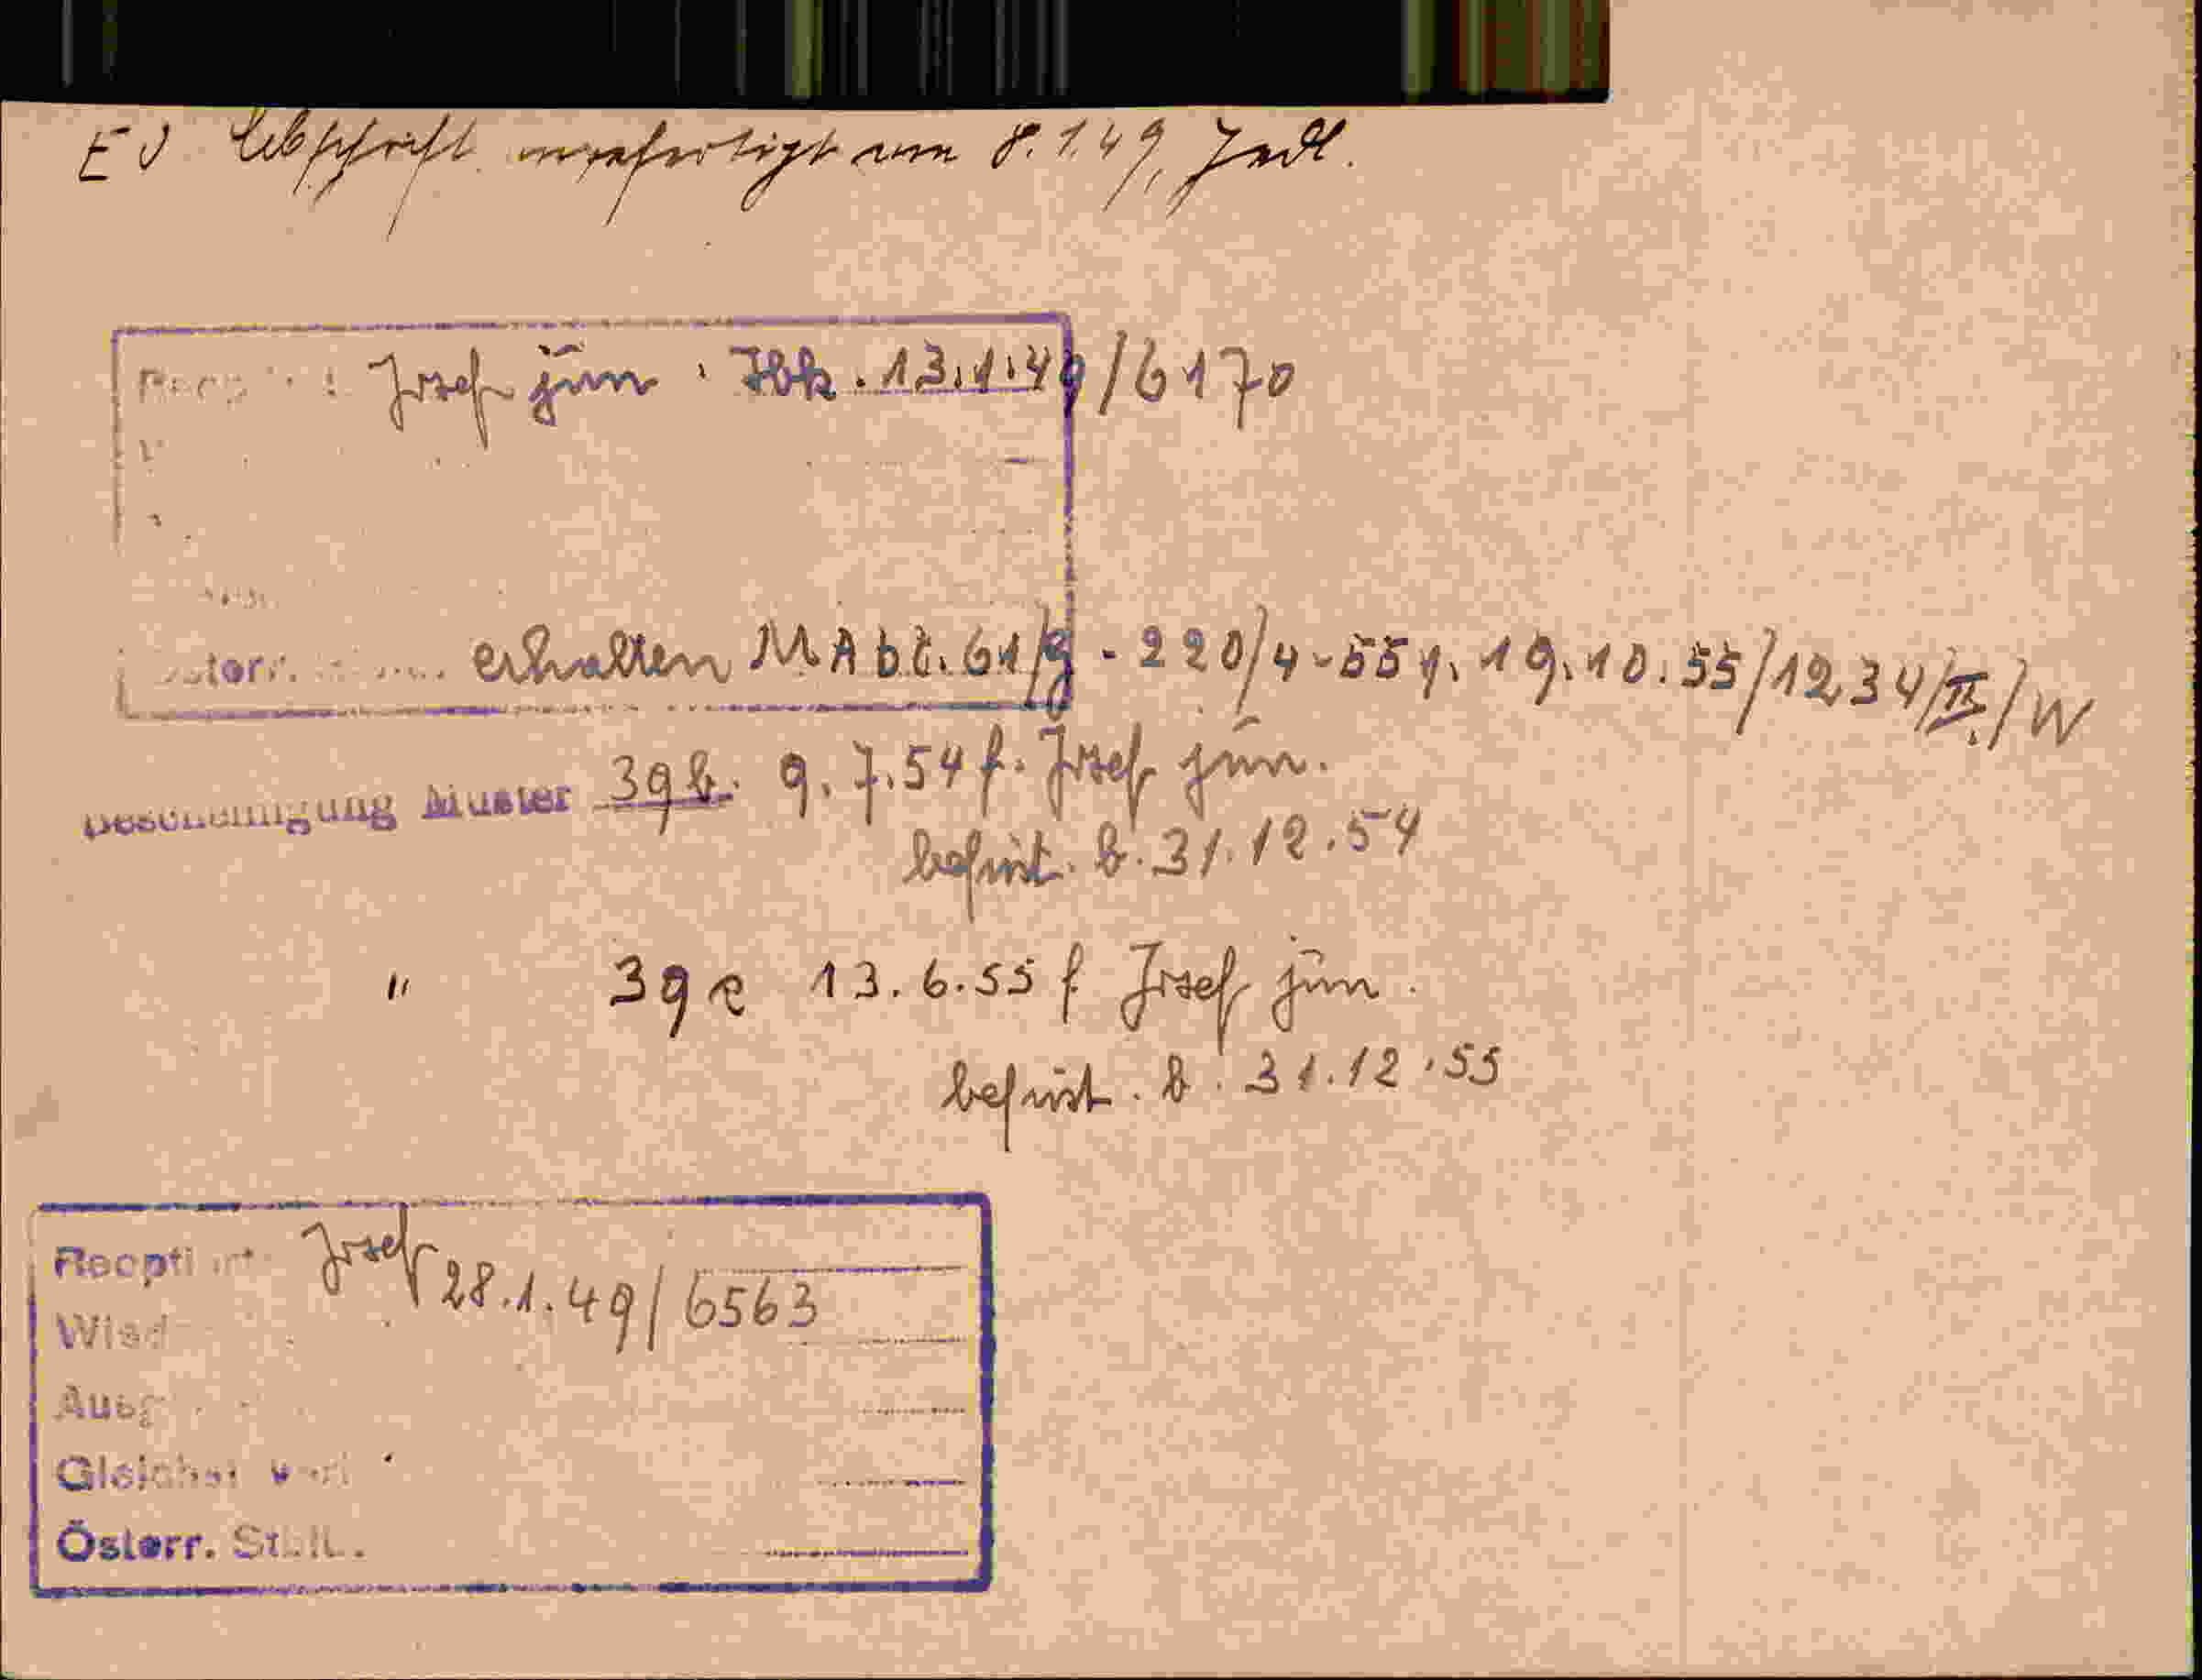 EV Abschrift angefertigt am 8.1.49, Jedl.
Josef jun. Ibk. 13.1.49/6170
österr. erhalten M Abt. 61/g - 220/4-55 v. 19.10.55/1234/II./W
Bescheinigung Muster 39b. 9.7.54 f. Josef jun.
befrist. b. 31.12.54
" 39e 13.6.55 f Josef jun.
befrist. b. 31.12.55
Reoptiert Josef 28.1.49/6563
Wied
Ausg
Gleichst
Österr. St.